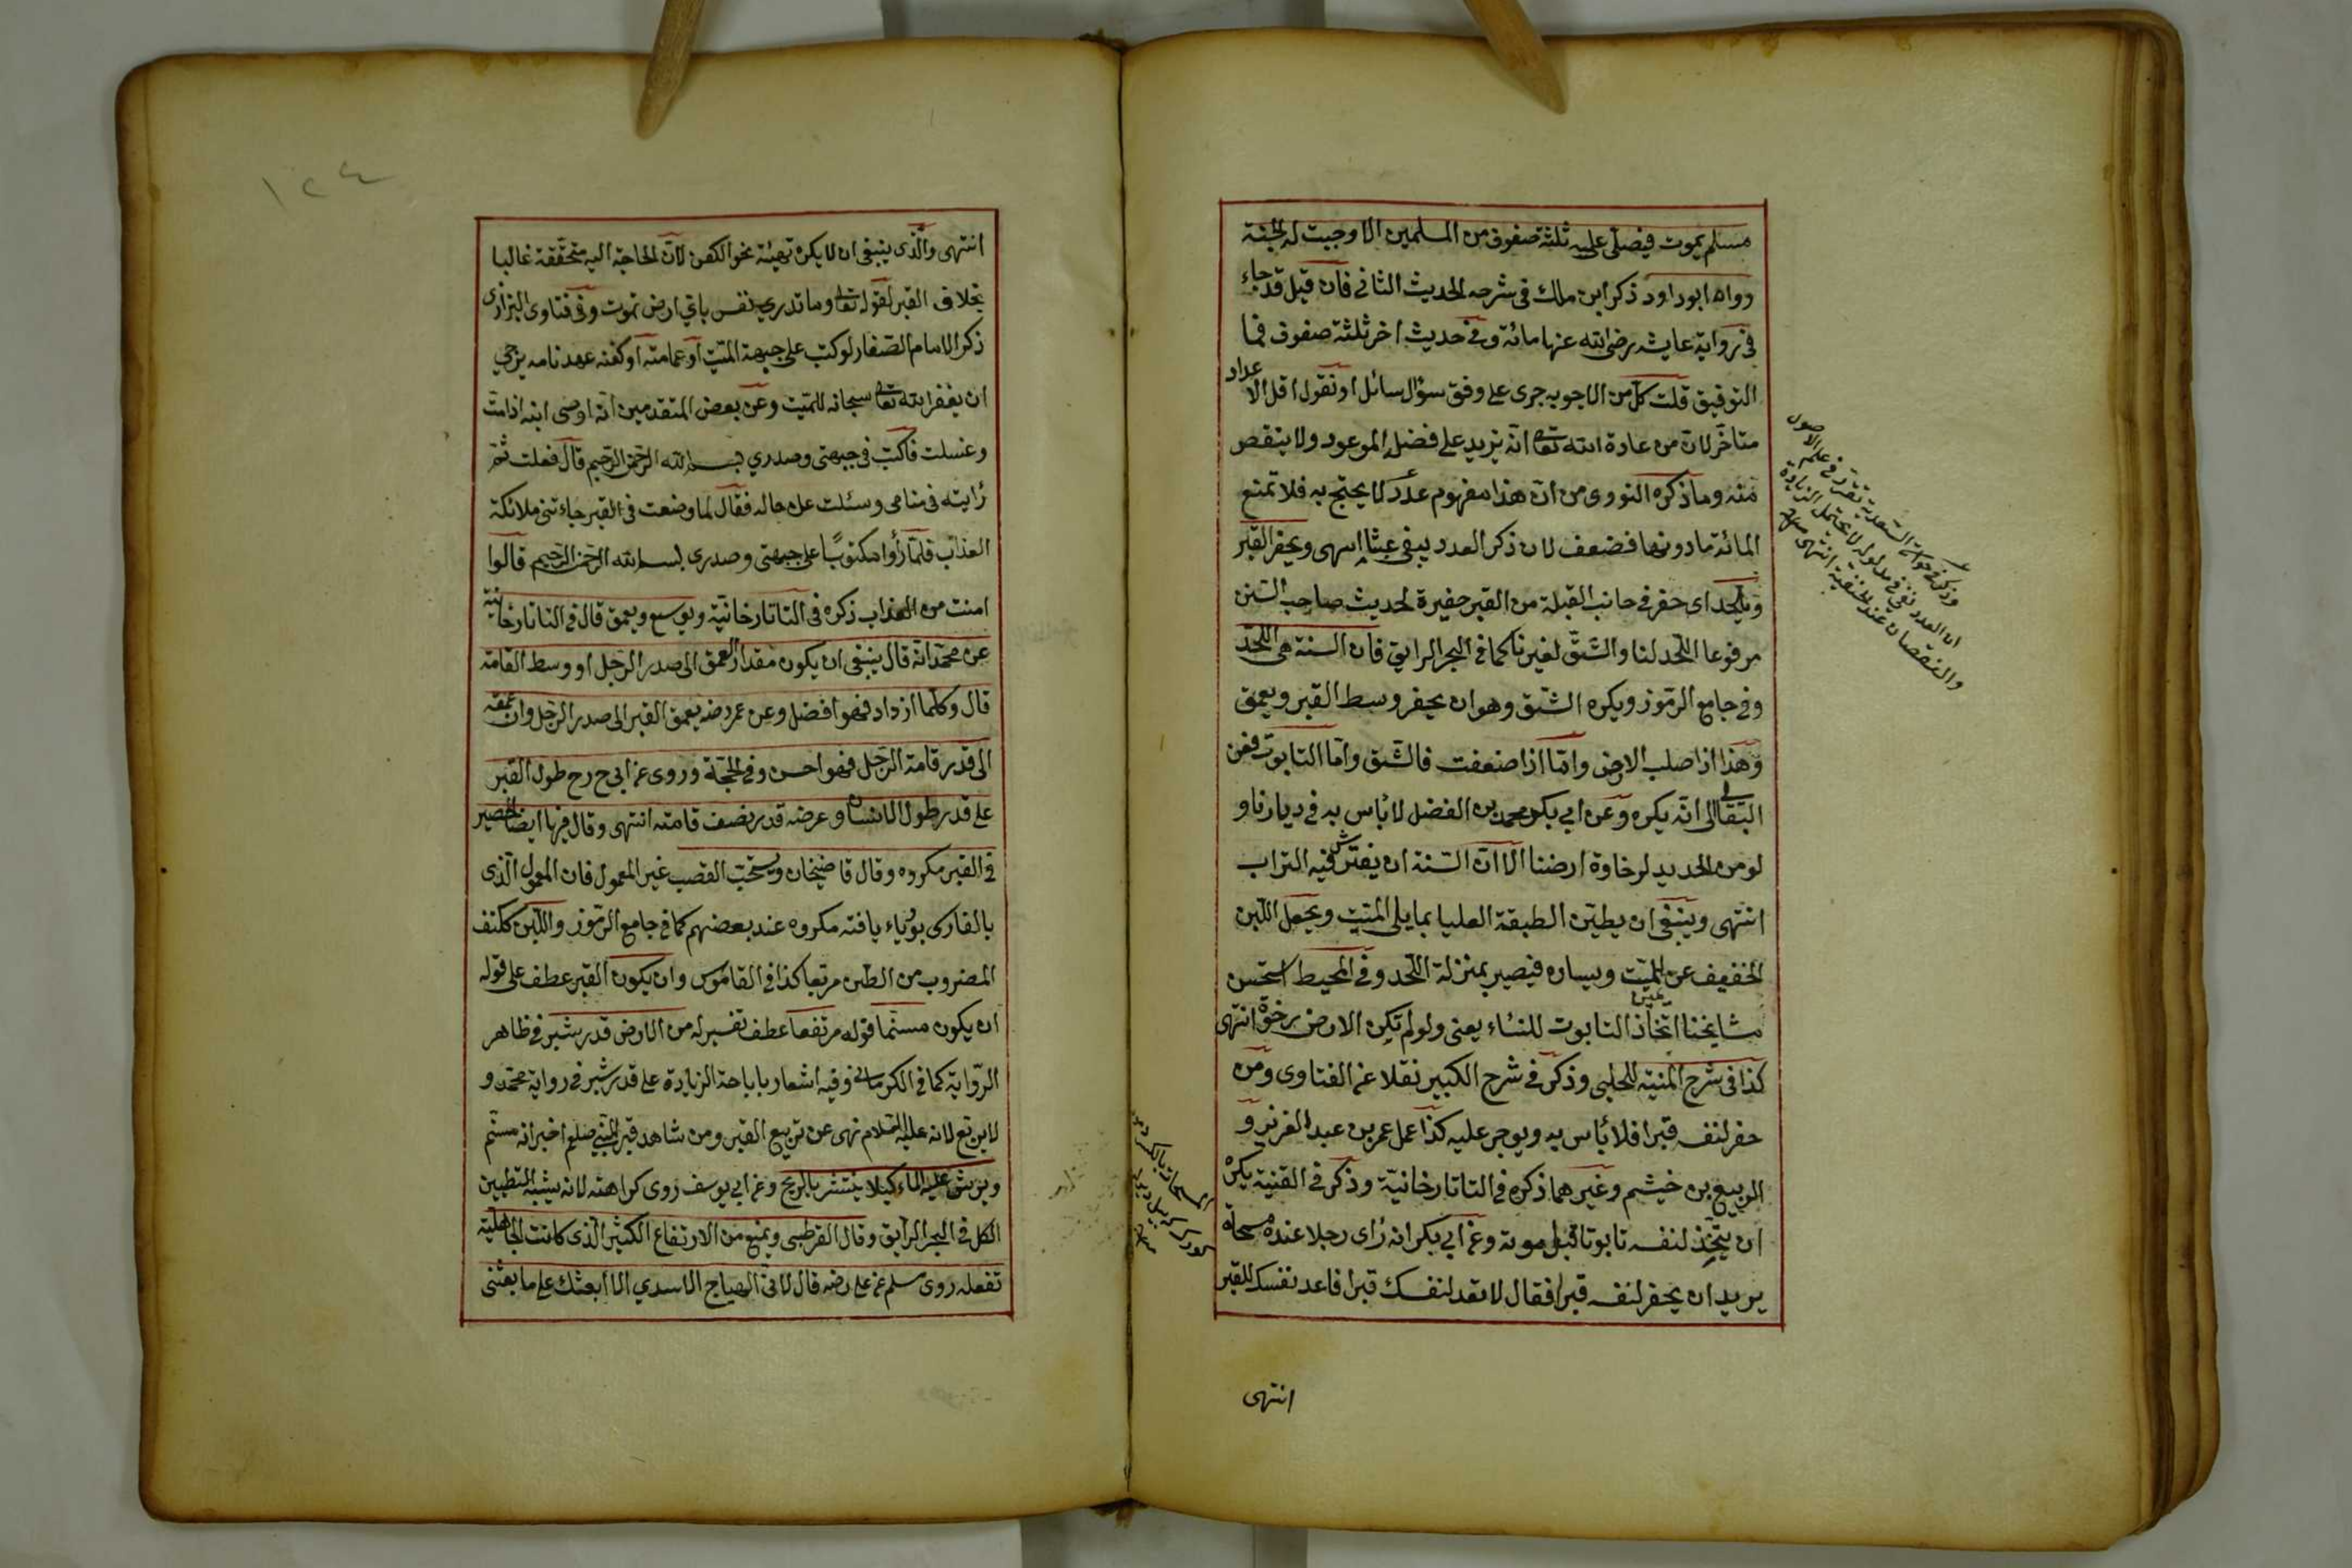 مسلم يموت فيصلى عليه ثلثة صفوف من المسلمين الا اوجبت له الجنة
رواه ابو داود ذكر ابن ملك فى شرحه الحديث الثانى فان قيل قد جاء
فى رواية عايشه رضى الله عنها مائة وفى حديث اخر ثلثة صفوف فما
التوفيق قلت كل من الاجوبه جرى على وفق سؤال سائل او نقول اقل الاعداد
متأخر لان من عادة الله تعا انه يزيد على فضل الموعود ولا ينقص
منه وما ذكره النووى من ان هذا مفهوم عدد لا يحتج به فلا تمنع
المائة مادونها فضعف لان ذكر العدد يبقى عبثا انتهى ويحفر القبر
ويلحد اى حفر فى جانب القبلة من القبر حفيرة لحديث صاحب السنن
مرفوعا اللحد لنا والشق لغيرنا كما فى البحر الرايق فان السنة هى اللحد
وفى جامع الرموز ويكره الشق وهو ان يحفر وسط القبر ويعمق
وهذا اذا صلب الارض واما اذا ضعفت فالشق واما التابوت فعن
البقالى انه يكره وعن ابي بكر محمد بن الفضل لا بأس به فى ديارنا و
لو من الحديد لرخاوة ارضنا الا ان السنة ان يفترش فيه التراب
انتهى وينبغى ان يطين الطبقة العليا بما يلى الميت ويجعل اللبن
الخفيف عن يمين الميت ويساره فيصير بمنزلة اللحد وفى المحيط استحسن
مشايخنا اتخاذ التابوت للنساء يعنى ولو لم تكن الارض رخوة انتهى
كذا فى شرح المنية للحلبى وذكر فى شرح الكبير نقلا عن الفتاوى ومن
حفر لنفسه قبرا فلا بأس به ويوجر عليه كذا عمل عمر بن عبد العزيز و
الربيع بن خيثم وغيرهما ذكره فى التاتارخانية وذكر فى القنية يكره
ان يتخذ لنفسه تابوتا قبل موته وعن ابي بكر انه رأى رجلا عنده مسحاة
يريد ان يحفر لنفسه قبرا فقال لا تعد لنفسك قبرا فاعد نفسك للقبر
انتهى
وذكر فى حواشى السعدية تقرر فى علم الاصول
ان العدد نص فى مدلوله لا يحتمل الزيادة
والنقصان عند الحنفية انتهى
١٢٤
انتهى والذى ينبغى ان لا يكره تهيئة نحو الكفن لان الحاجة اليه متحققة غالبا
بخلاف القبر لقوله تعا وما تدري نفس باي ارض تموت وفى فتاوى البزازى
ذكر الامام الصفار لو كتب على جبهة الميت او عمامته او كفنه عهد نامه يرجي
ان يغفر الله تعا سبحانه للميت وعن بعض المتقدمين انه اوصى ابنه اذا مت
وغسلت فاكتب فى جبهتى وصدري بسم الله الرحمن الرحيم قال فعلت ثم
رايته فى منامى وسئلت عن حاله فقال لما وضعت فى القبر جاءتنى ملائكة
العذاب فلما رأوا مكتوبا على جبهتى وصدرى بسم الله الرحمن الرحيم قالوا
امنت من العذاب ذكره فى التاتارخانية ويوسع ويعمق قال فى التاتارخانية
عن محمد انه قال ينبغى ان يكون مقدار العمق الى صدر الرجل او وسط القامة
قال وكلما ازداد فهو افضل وعن عمر رضه يعمق القبر الى صدر الرجل وان عمقه
الى قدر قامة الرجل فهو احسن وفى الحجة وروى عن ابي ح رح طول القبر
على قدر طول الانسان وعرضه قدر نصف قامته انتهى وقال فيها ايضا الحصير
فى القبر مكروه وقال قاضيخان ويستحب القصب غير المعمول فان المعمول الذى
بالفارسى بورياء يافته مكروه عند بعضهم كما فى جامع الرموز واللبن ككتف
المضروب من الطين مربعا كذا فى القاموس وان يكون القبر عطف على قوله
ان يكون مسنما قوله مرتفعا عطف تفسير له من الارض قدر شبر فى ظاهر
الرواية كما فى الكرمانى وفيه اشعار باباحة الزيادة على قدر شبر فى رواية محمد و
لا يربع لانه عليه السلام نهى عن تربيع القبر ومن شاهد قبر النبي صلعم اخبر انه مسنم
ويرش عليه الماء كيلا ينتشر بالريح وعن ابي يوسف روى كراهته لانه يشبه التطيين
الكل فى البحر الرايق وقال القرطبى ويمنع من الارتفاع الكثير الذى كانت الجاهلية
تفعله روى مسلم عن على رضه قال لابى الهياج الاسدي الا ابعثك على ما بعثنى